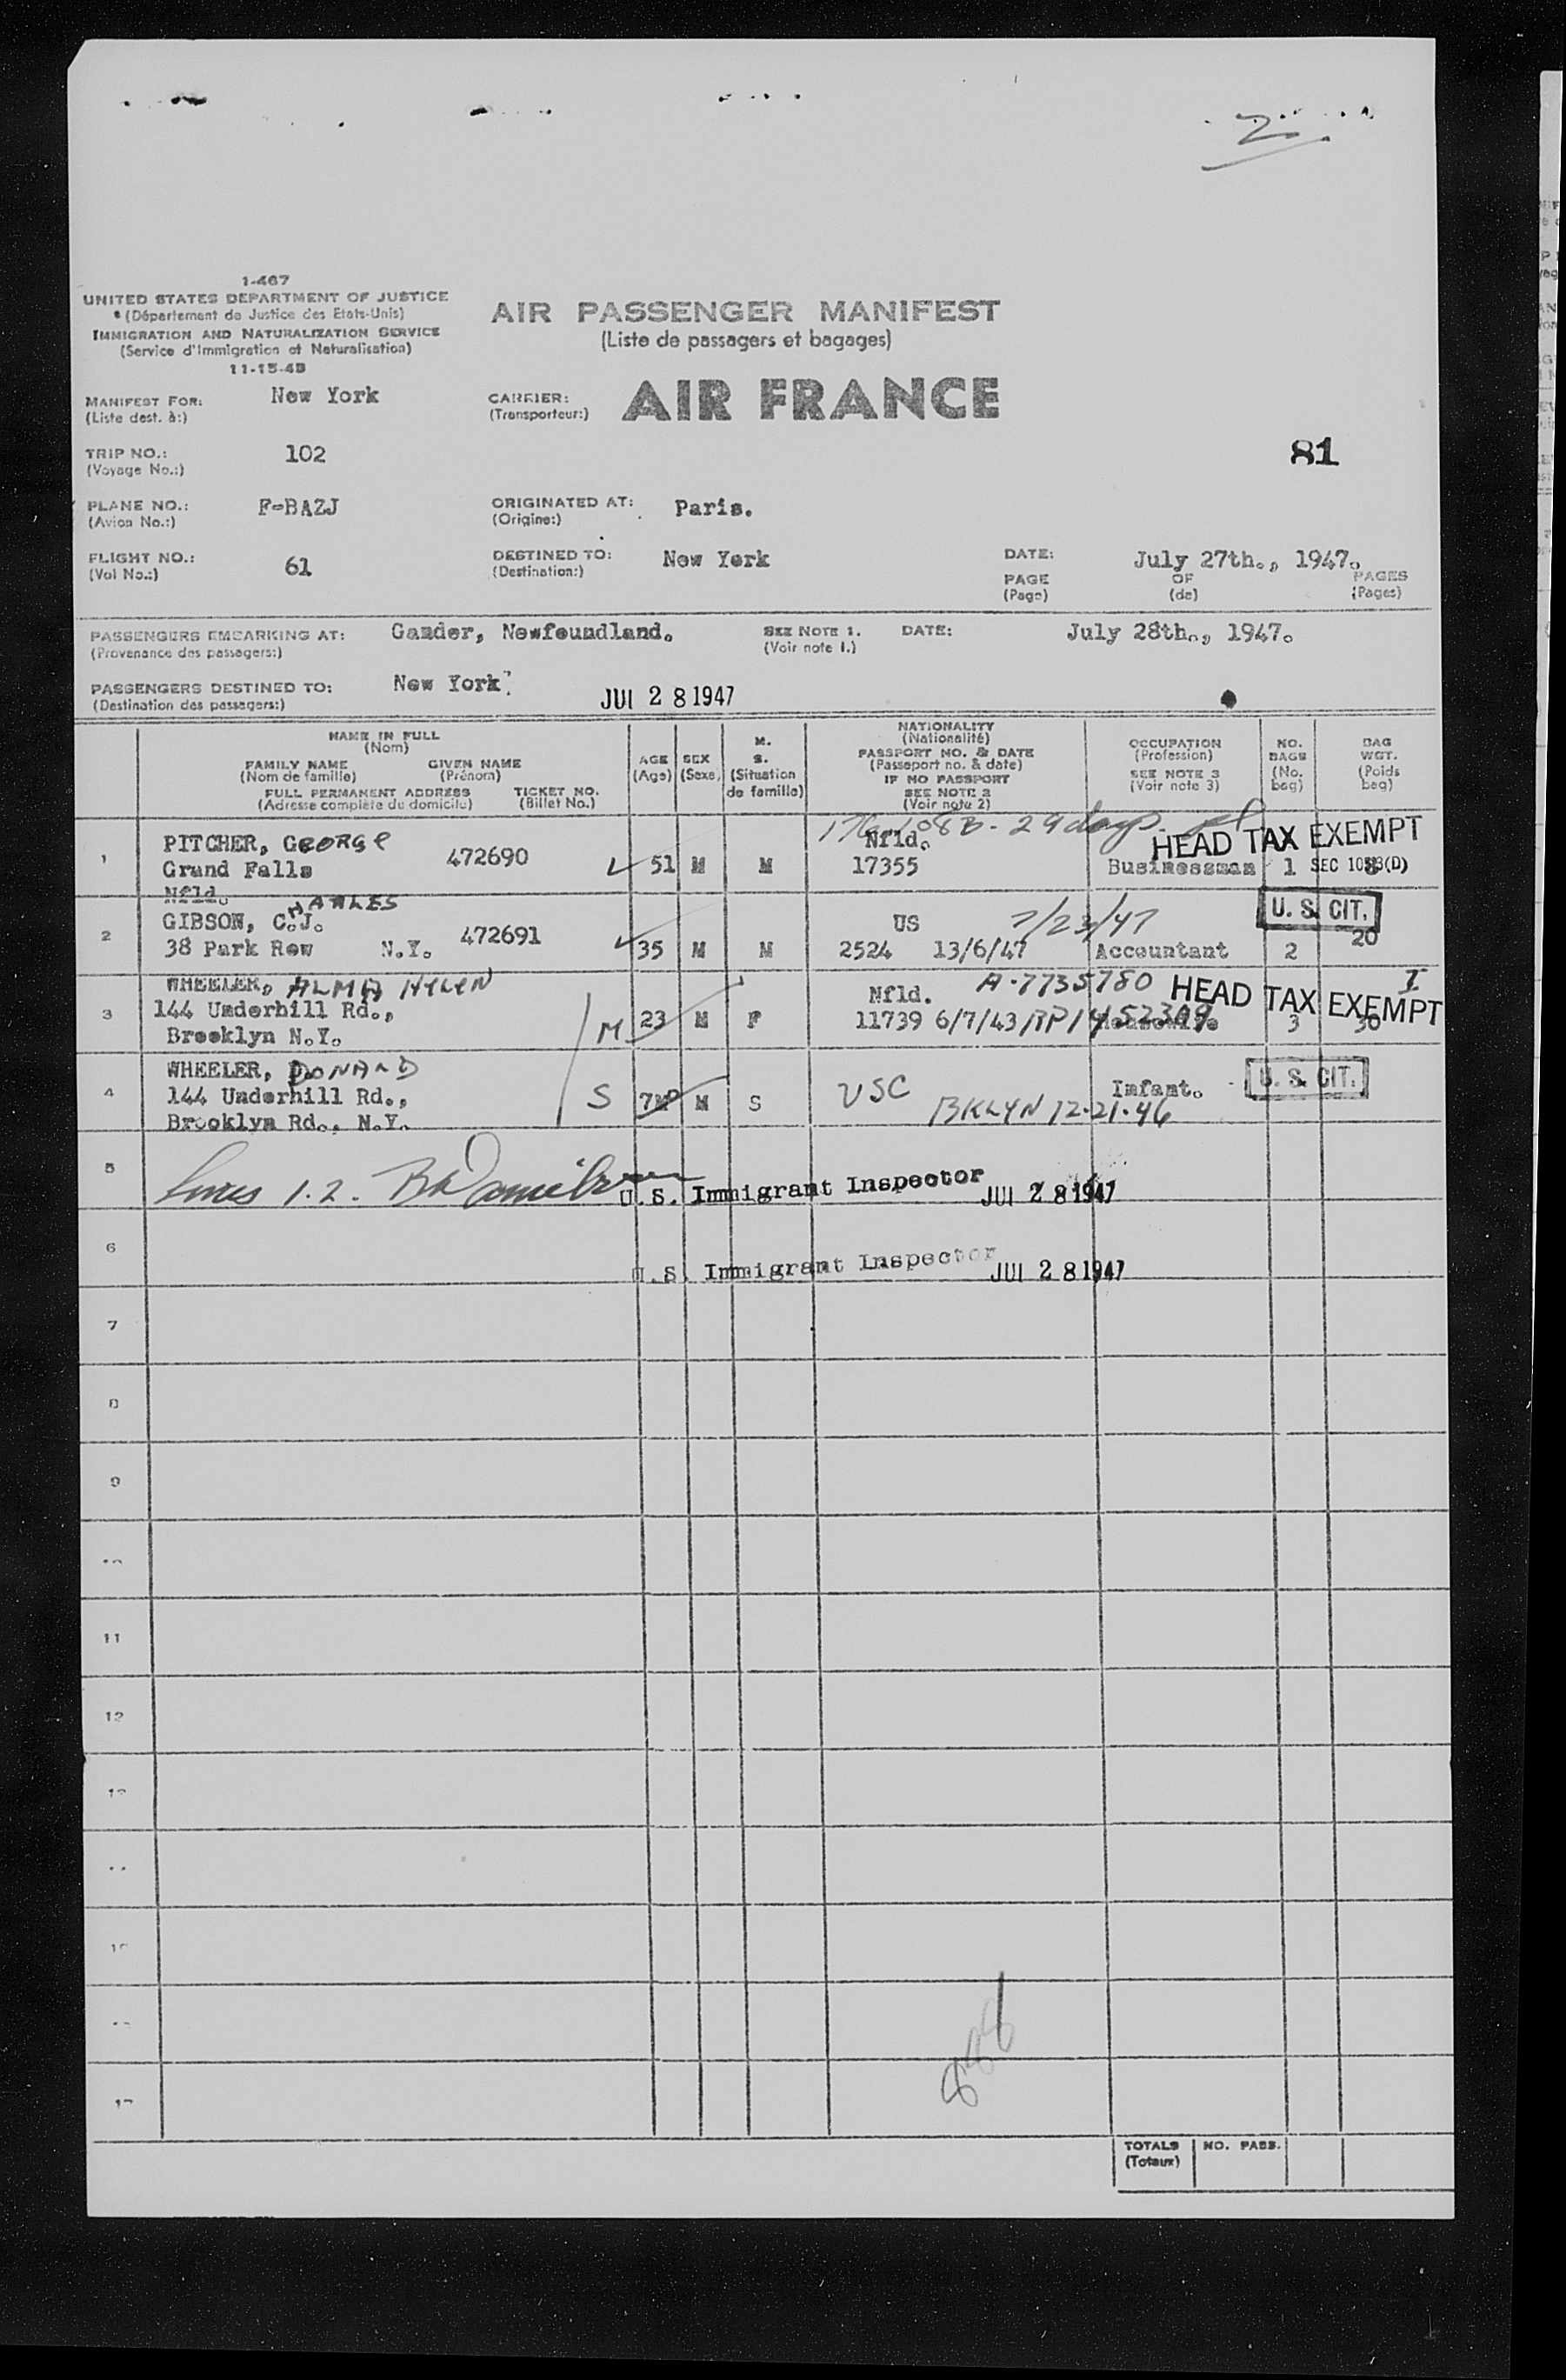 2
1-467
UNITED STATES DEPARTMENT OF JUSTICE
(Département de Justice des Etats-Unis)
IMMIGRATION AND NATURALIZATION SERVICE
(Service d'Immigration et Naturalisation)
11-15-43
AIR PASSENGER MANIFEST
(Liste de passagers et bagages)
MANIFEST FOR: New York
(Liste dest. à:)
CARRIER: AIR FRANCE
(Transporteur:)
TRIP NO.: 102
(Voyage No.:)
81
PLANE NO.: F-BAZJ
(Avion No.:)
ORIGINATED AT: Paris.
(Origine:)
FLIGHT NO.: 61
(Vol No.:)
DESTINED TO: New York
(Destination:)
DATE: July 27th., 1947.
PAGE OF PAGES
(Page) (de) (Pages)
PASSENGERS EMBARKING AT: Gander, Newfoundland. SEE NOTE 1. DATE: July 28th., 1947.
(Provenance des passagers:) (Voir note 1.)
PASSENGERS DESTINED TO: New York
(Destination des passagers:)
JUL 28 1947
NAME IN FULL
(Nom)
FAMILY NAME GIVEN NAME
(Nom de famille) (Prénom)
FULL PERMANENT ADDRESS TICKET NO.
(Adresse complète du domicile) (Billet No.)
AGE
(Age)
SEX
(Sexe)
M.
S.
(Situation
de famille)
NATIONALITY
(Nationalité)
PASSPORT NO. & DATE
(Passeport no. & date)
IF NO PASSPORT
SEE NOTE 2
(Voir note 2)
OCCUPATION
(Profession)
SEE NOTE 3
(Voir note 3)
NO.
BAGS
(No.
bag)
BAG
WGT.
(Poids
bag)
29 days
1 PITCHER, GEORGE 472690 51 M M Nfld. HEAD TAX EXEMPT
Grand Falls 17355 Businessman 1 SEC 10 (D)
Nfld.
2 GIBSON, C.J. HARLES 472691 35 M M US 7/23/47 U. S. CIT.
38 Park Row N.Y. 2524 13/6/47 Accountant 2 20
3 WHEELER, ALMA HELEN M 23 M F Nfld. A-7735780 HEAD TAX EXEMPT I
144 Underhill Rd., 11739 6/7/43 Housewife 3 30
Brooklyn N.Y.
4 WHEELER, DONALD S 7 M S USC Infant. U. S. CIT.
144 Underhill Rd., BKLYN 12-21-46
Brooklyn Rd., N.Y.
5 Lines 1. 2. U.S. Immigrant Inspector JUL 28 1947
6 U.S. Immigrant Inspector JUL 28 1947
7
8
9
11
12
TOTALS NO. PASS.
(Totaux)